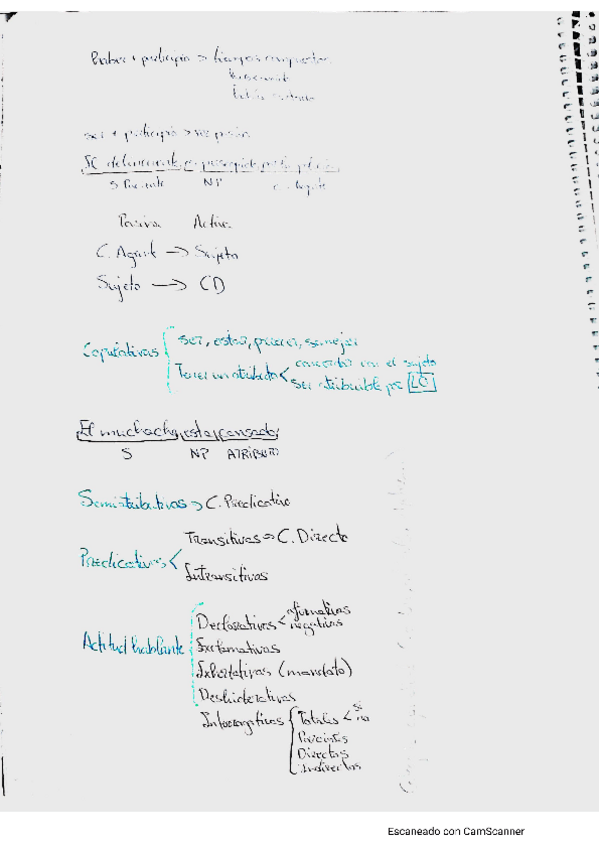 Haber + participio -> tiempos compuestos
ser + participio -> voz pasiva
El delincuente es perseguido por la policía
S Paciente NP C. Agente
Pasiva Activa
C. Agent -> Sujeto
Sujeto -> CD
Copulativas { ser, estar, parecer, semejar
Tener un atributo < concordar con el sujeto
ser atribuible por LO
El muchacho esta cansado
S NP ATRIBUTO
=> C. Predicativo
Transitivas => C. Directo
Predicativas <
Intransitivas
Declarativas < afirmativas
negativas
Actitud hablante { Exclamativas
Exhortativas (mandato)
Desiderativas
Interrogativas { Totales < si
no
Parciales
Directas
indirectas
Escaneado con CamScanner